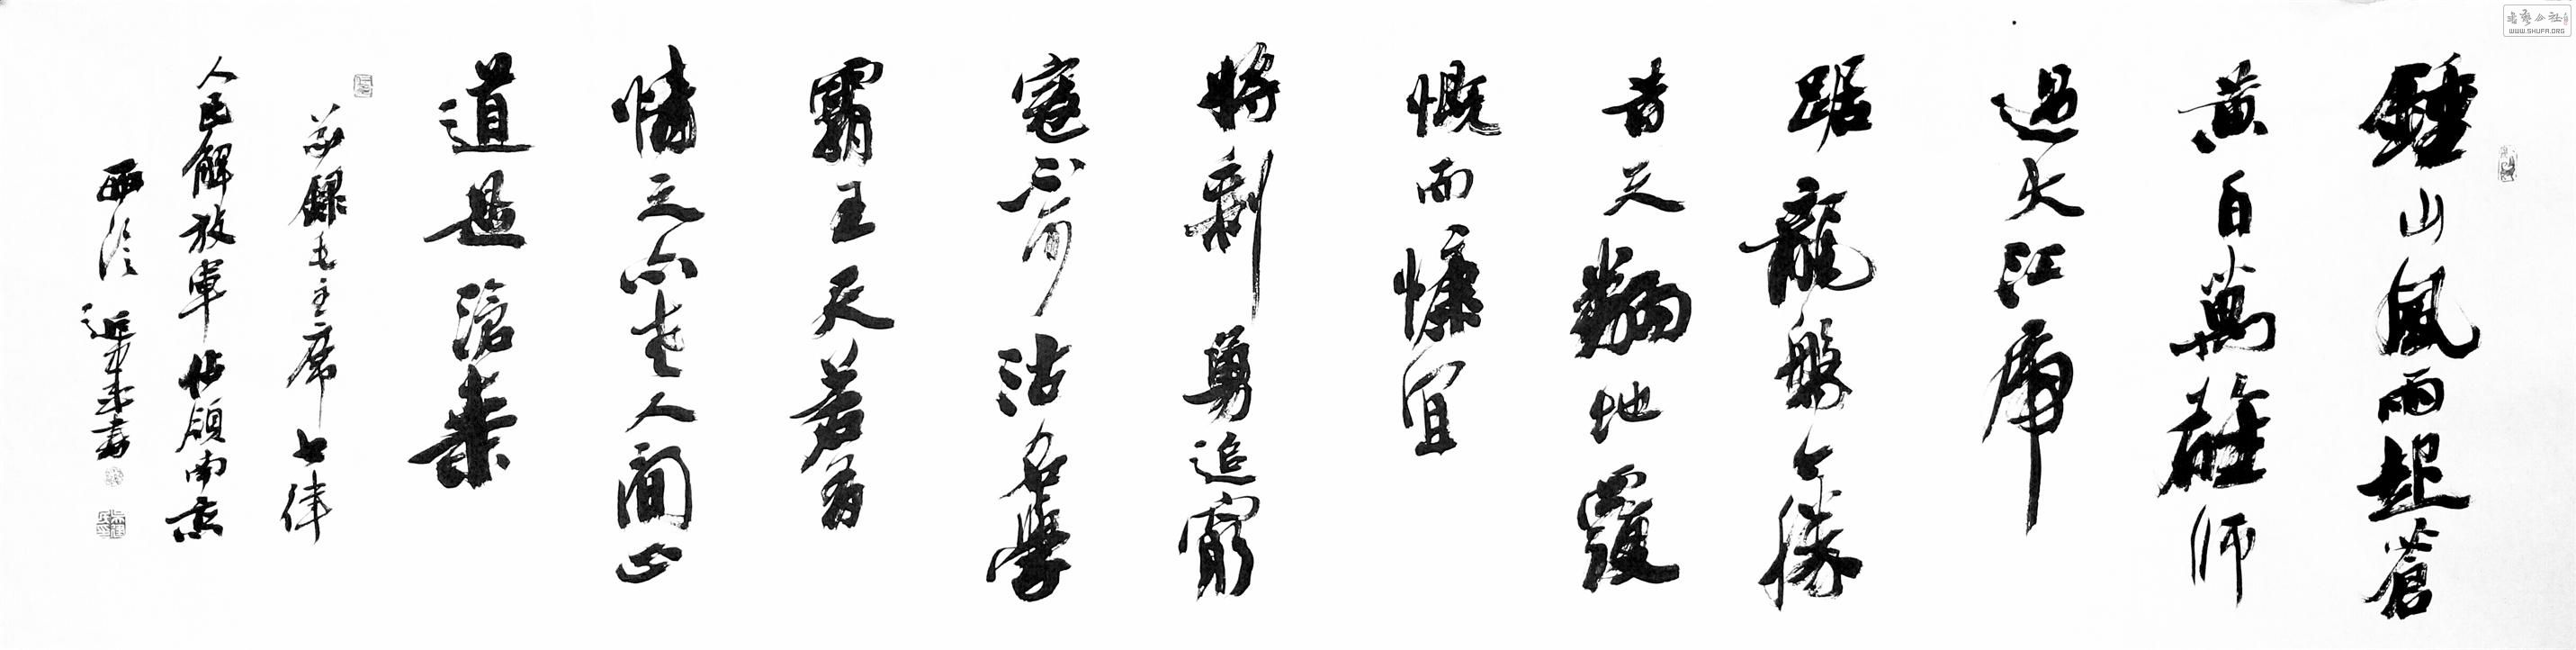 鍾山風雨起蒼
黃百萬雄師
過大江虎
踞龍盤今勝
昔天翻地覆
慨而慷宜
將剩勇追窮
寇不可沽名學
霸王天若有
情天亦老人間正
道是滄桑
恭錄毛主席七律
人民解放軍佔領南京
西泠 書
書藝公社
WWW.SHUFA.ORG